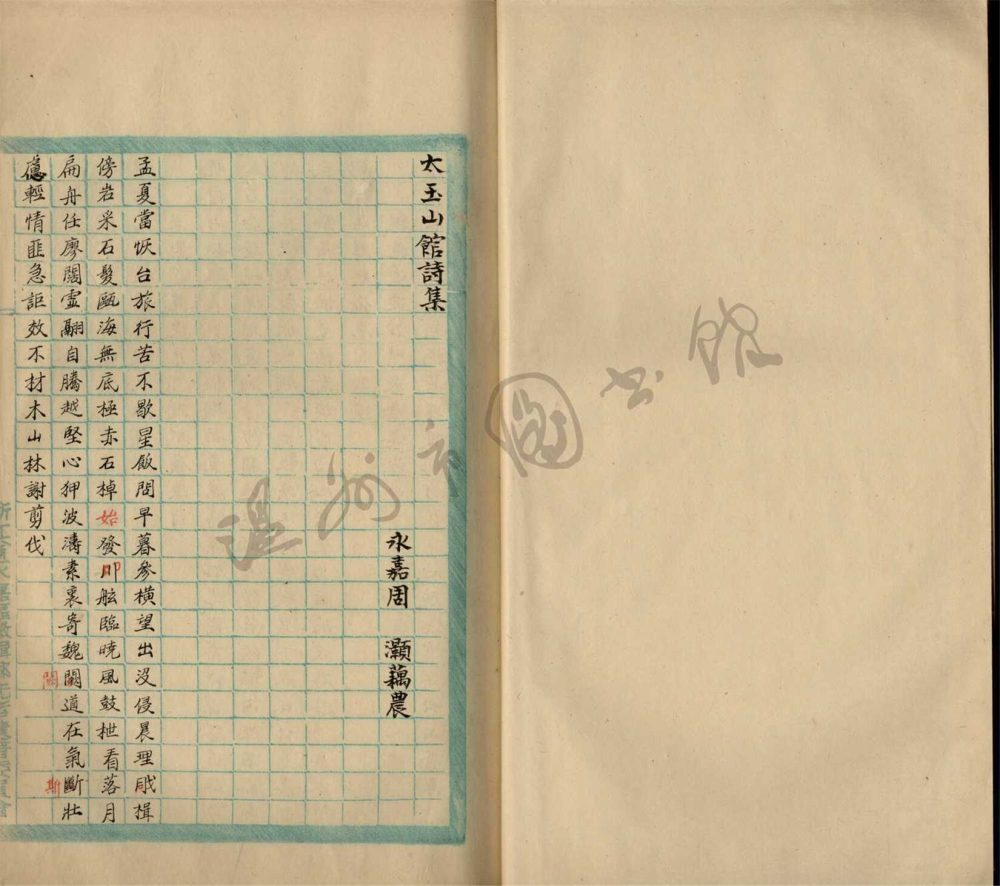 太玉山館詩集
永嘉周　灝藕農
孟夏當恢台旅行苦不歇星飯問早暮參橫望出沒侵晨理戙楫
傍岩采石髮甌海無底極赤石棹始發叩舷臨曉風鼓枻看落月
扁舟任廖闊靈翮自騰越堅心狎波濤素裏寄魏闕道在氣斷壯
闕
斯
憶輕情匪急詎效不材木山林謝剪伐
溫州市圖書館